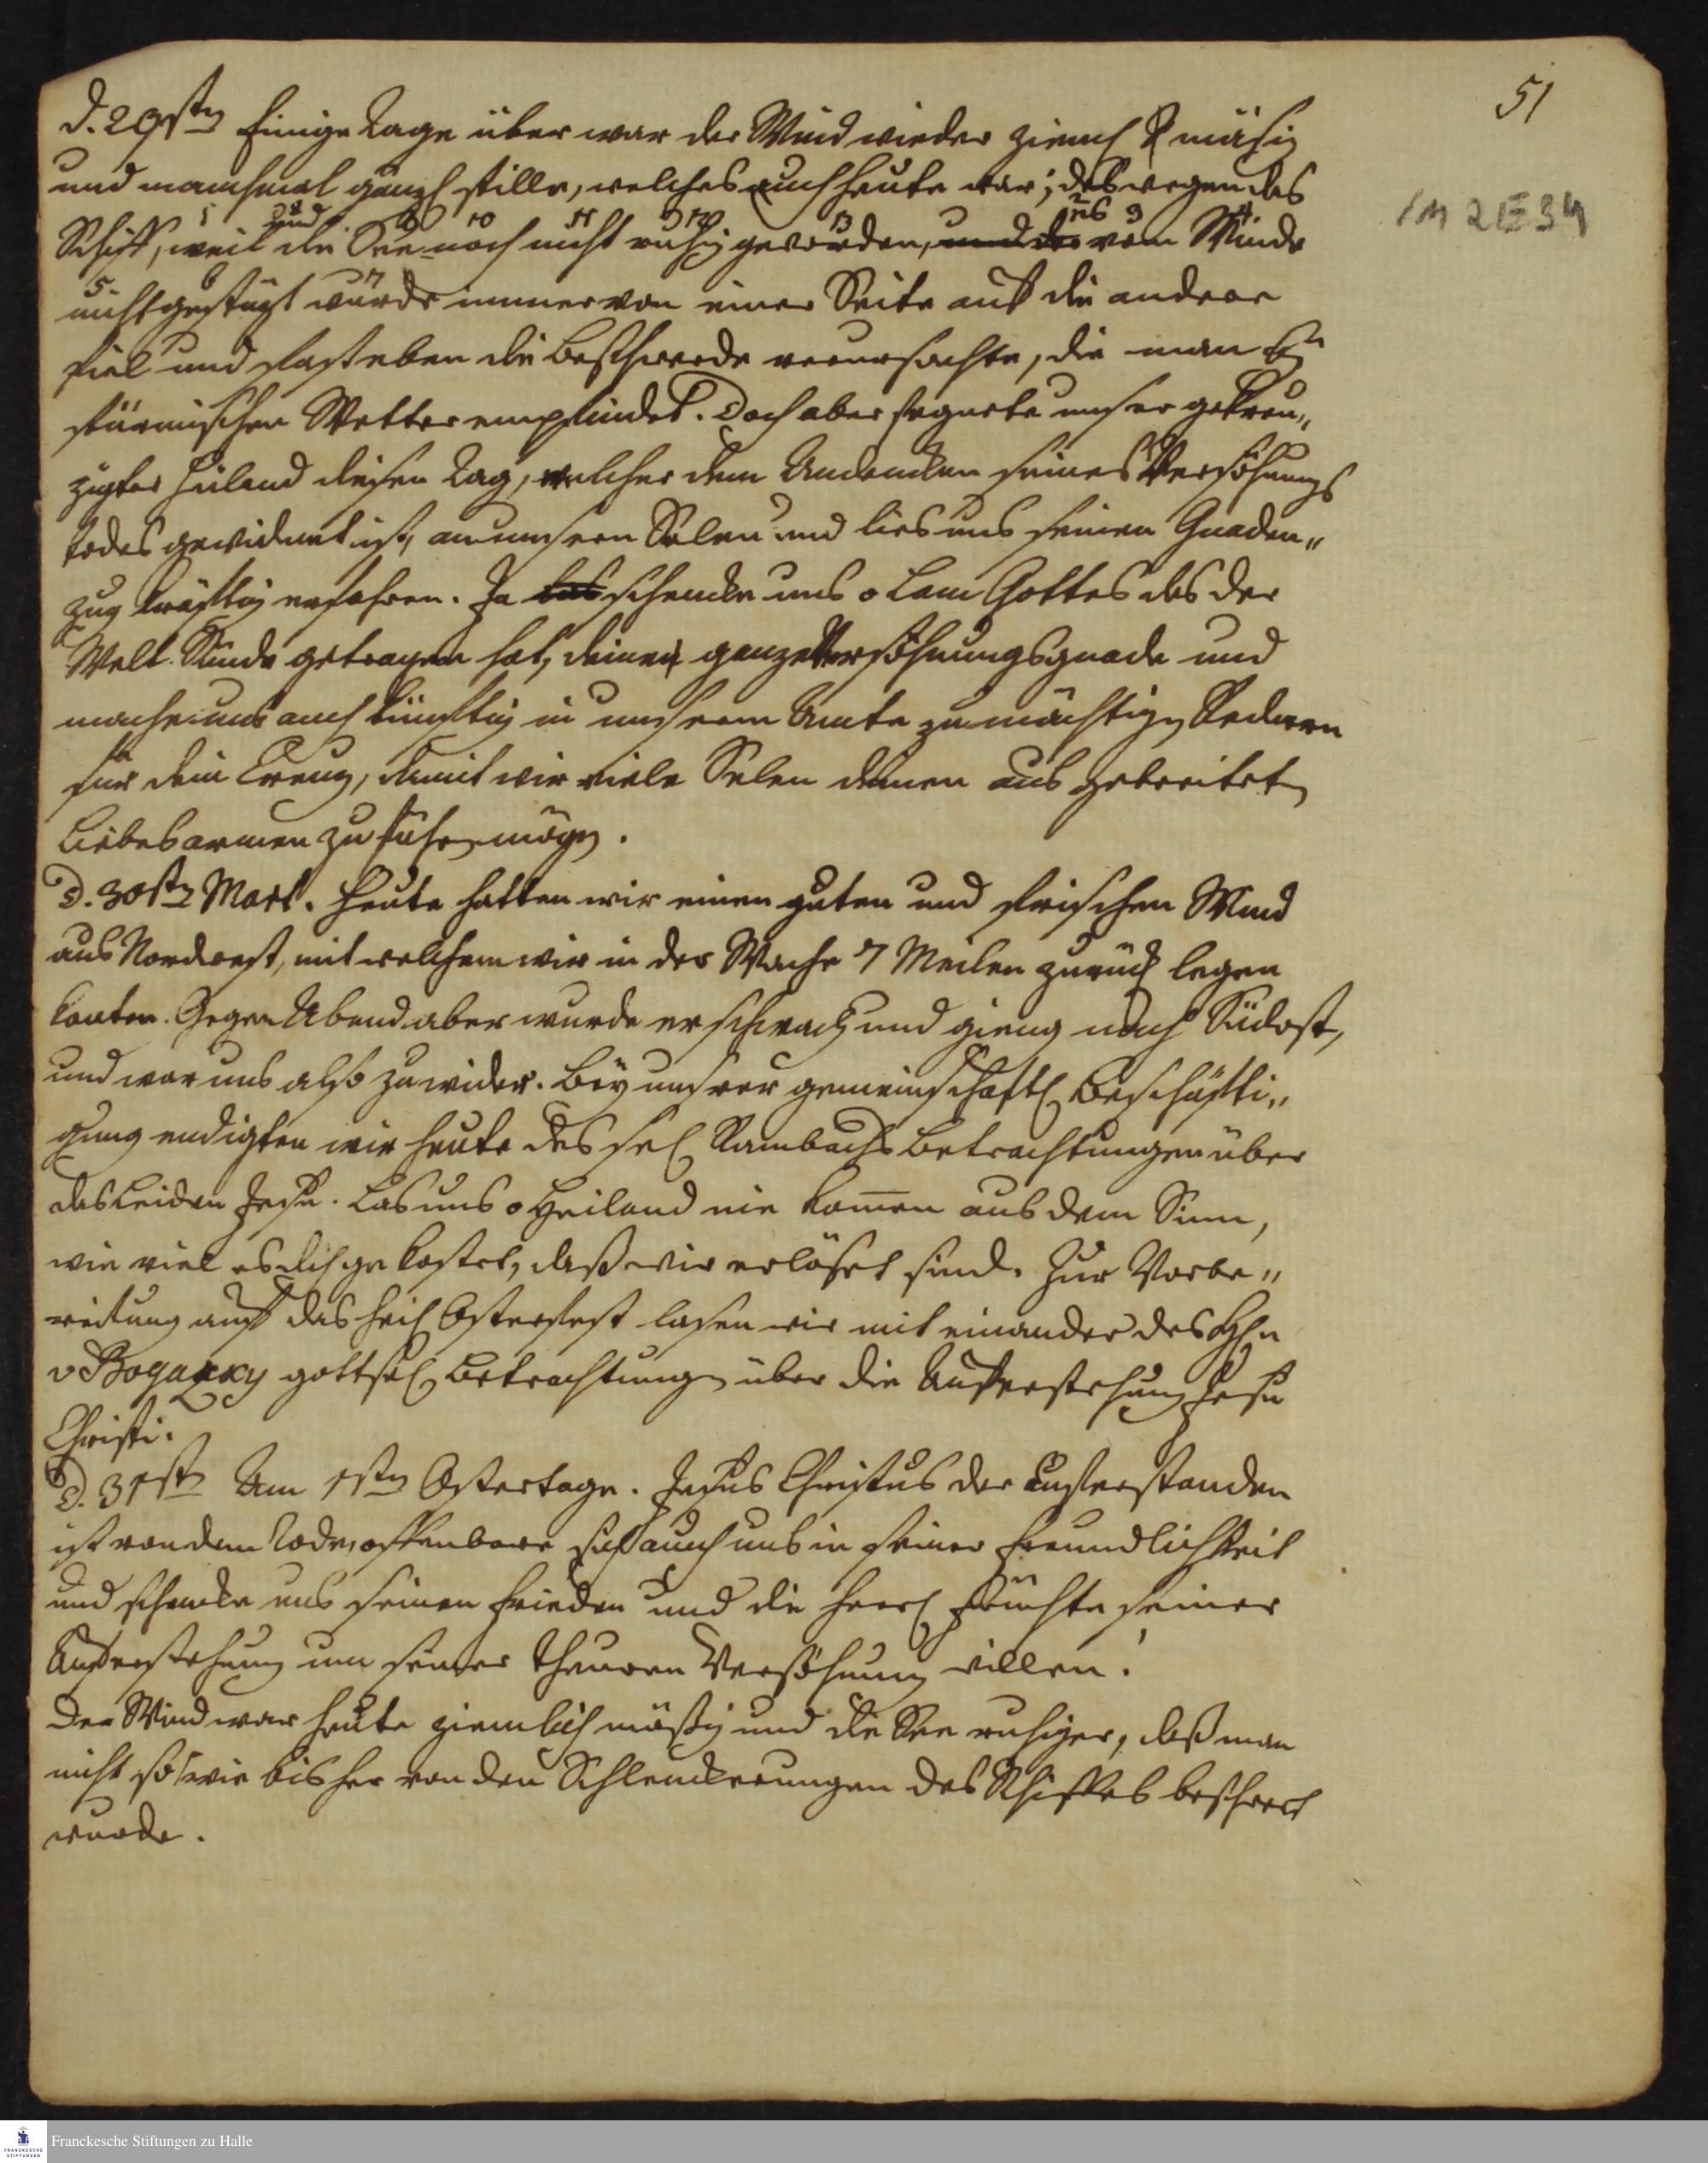 51
1M 2E34
d. 29sten Einige Tage über war der Wind wieder zieml mäsig
und manchmal gänzl stille, welches auch heute war; deswegen das
1 2 und 8 10 11 12 13 es 3 4
Schiff, weil die See noch nicht ruhig geworden, und das vom Winde
5 6 7
nicht gestüzt würde immer von einer Seite auf die andere
fiel und fast eben die Beschwerde verursachte, die man bey
stürmischen Wetter empfindet. Doch aber segnete unser gekreu„
zigter Heiland diesen Tag, welcher dem Andencken seines Versöhnungs
todes gewidmet ist, an unsern Selen und lies uns seinen Gnaden„
zug kräftig erfahren. Ja schencke uns o Lam Gottes das der
Welt Sünde getragen hat, deine ganze Versöhnungsgnade und
mache uns auch künftig in unserm Amte zu mächtigen Rednern
für dein Creuz, damit wir viele Selen deinen ausgebreiteten
Liebesarmen zuführen mögen.
d. 30sten Mart. Heute hatten wir einen guten und frischen Wind
aus Nordwest, mit welchem wir in der Wache 7 Meilen zurück legen
konten. Gegen Abend aber wurde er schwach und gieng nach Südost,
und war uns also zuwider. Bey unsrer gemeinschaftl Beschäfti„
gung endigten wir heute des sel Rambachs Betrachtungen über
das Leiden Jesu. Las uns o Heiland nie komen aus dem Sinn,
wie viel es dich gekostet, daß wir erlöset sind. Zur Vorbe„
reitung auf das heil Osterfest lasen wir mit einander des Hn
v Bogazky gottsel Betrachtungen über die Auferstehung Jesu
Christi.
d. 31sten Am 1sten Ostertage. Jesus Christus der auferstanden
ist von dem Tode, offenbare sich auch uns in seiner Freundlichkeit
und schencke uns seinen Frieden und die herrl Früchte seiner
Auferstehung um seiner theuren Versöhnung willen!
Der Wind war heute ziemlich mäßig und die See ruhiger, daß man
nicht so wie bisher von den Schlenckerungen des Schiffes beschwert
wurde.
FRANCKESCHE STIFTUNGEN
Franckesche Stiftungen zu Halle